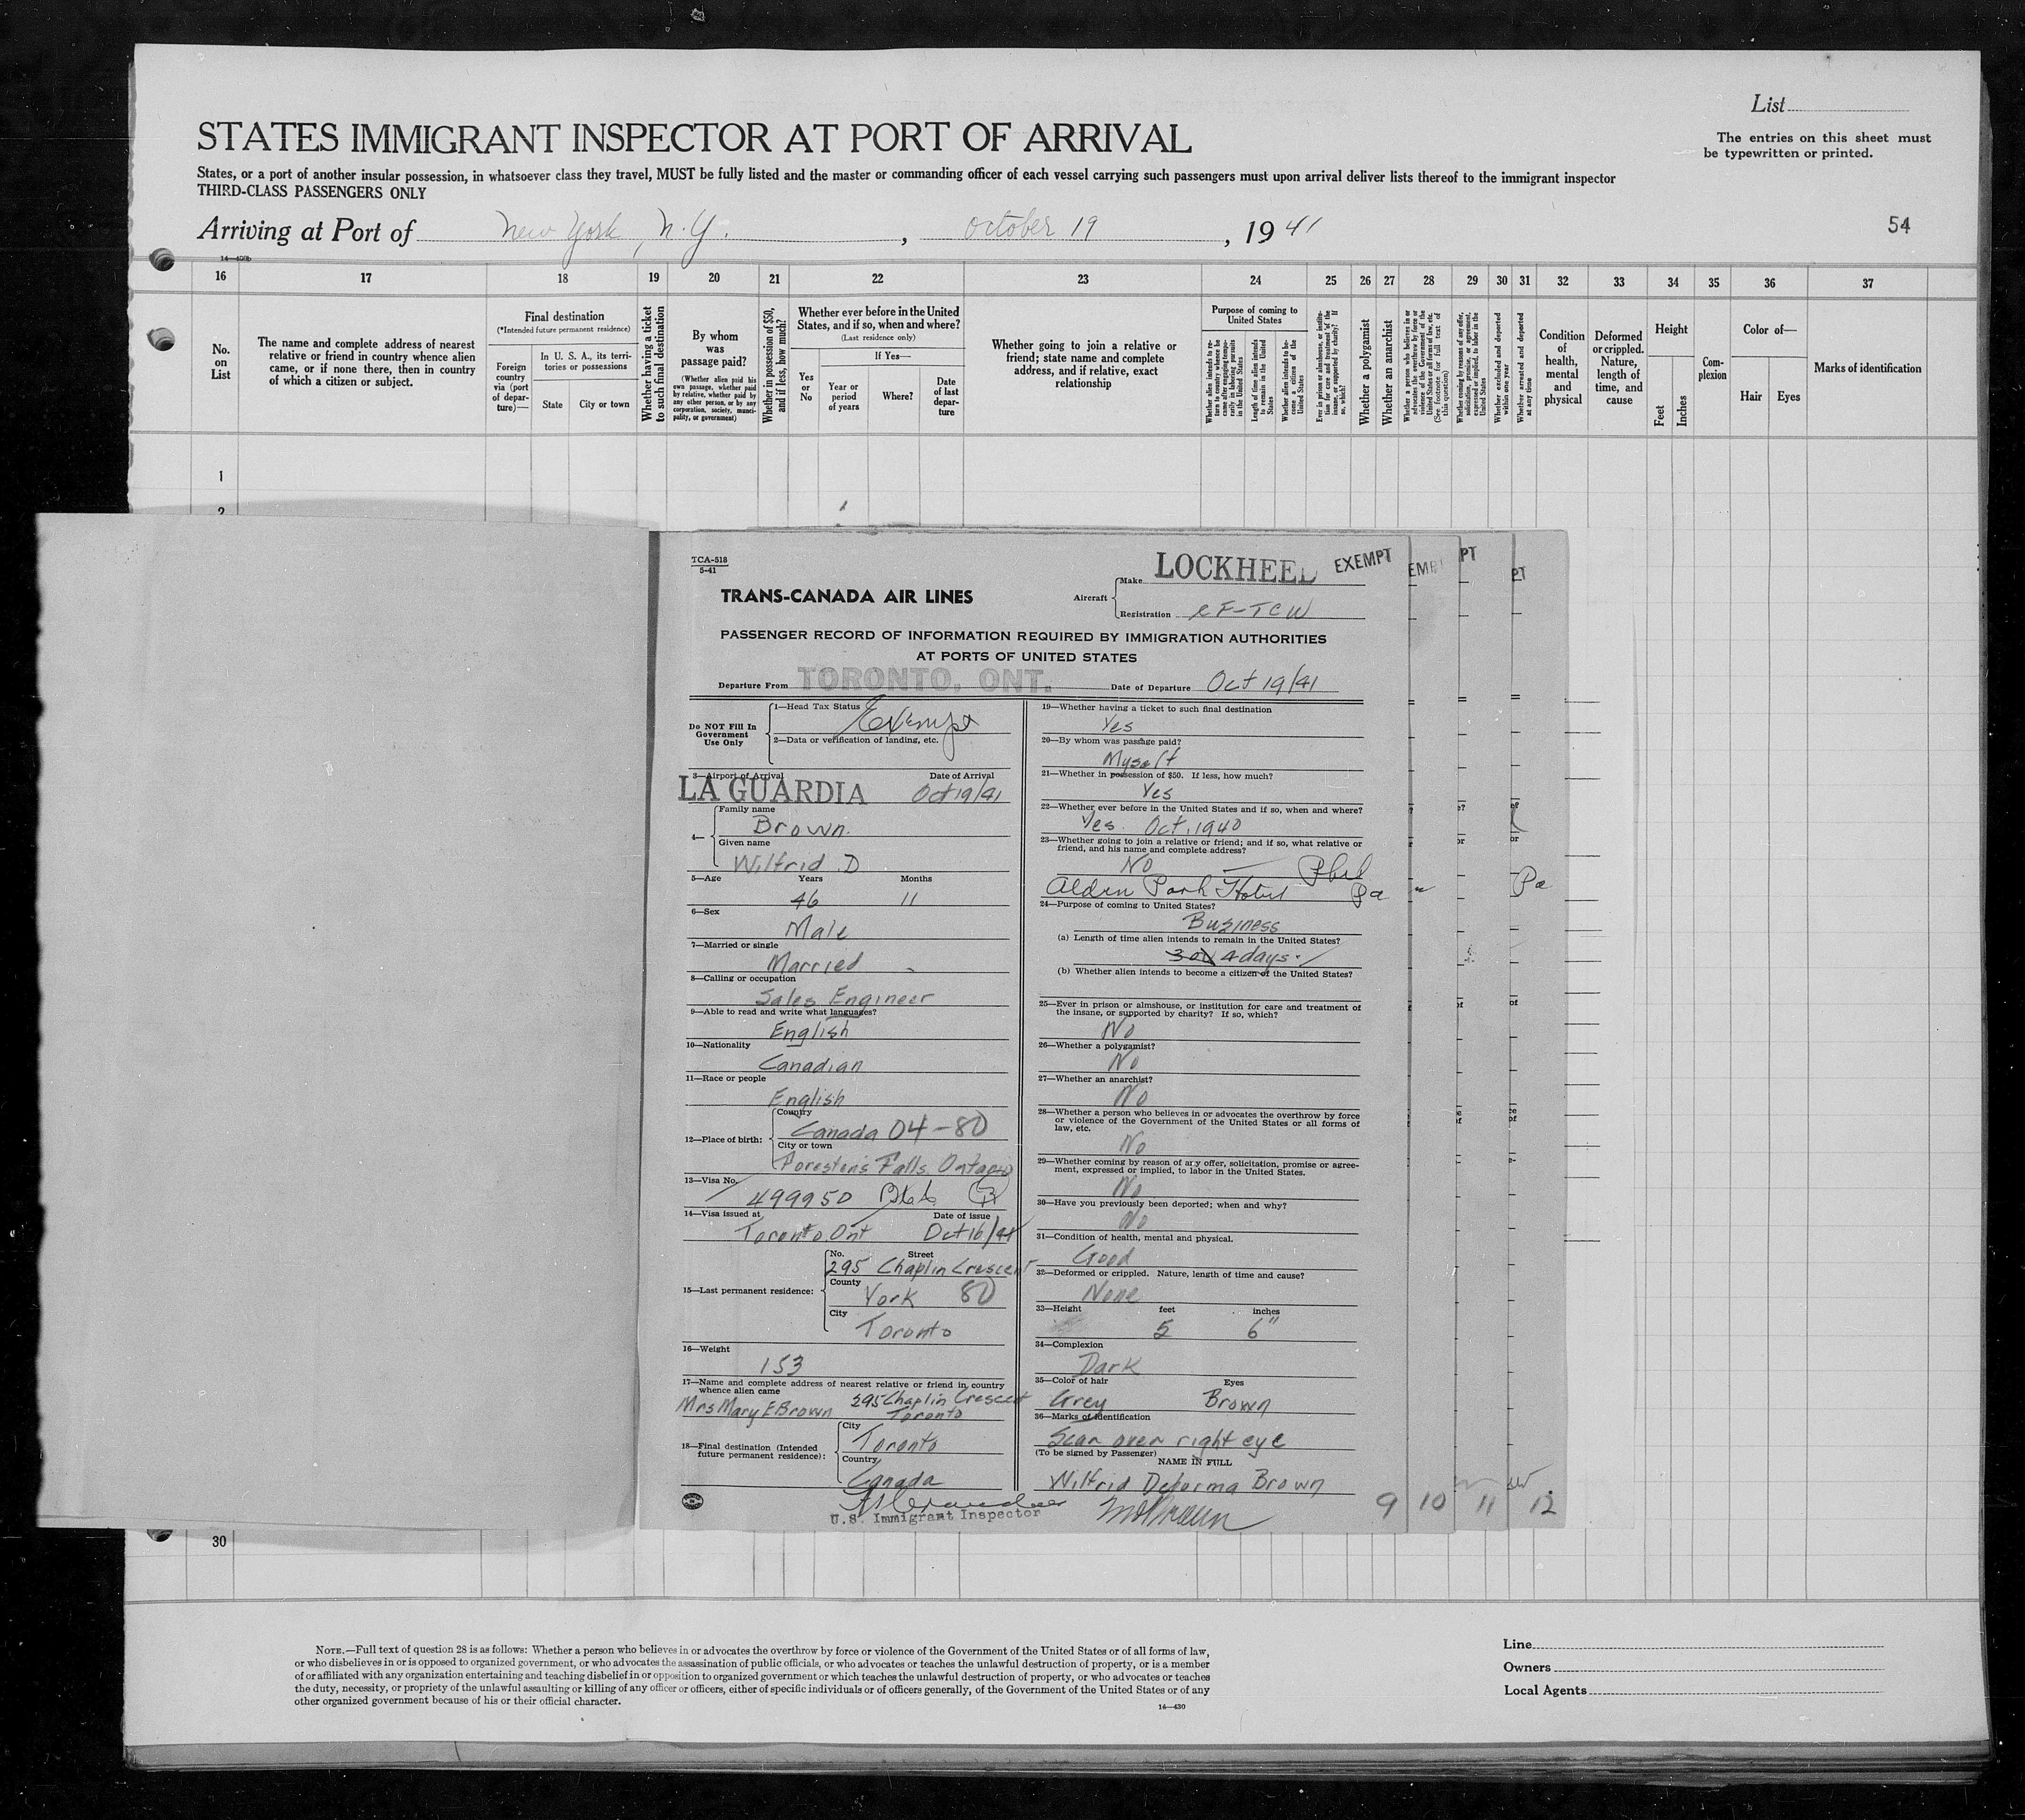 List
STATES IMMIGRANT INSPECTOR AT PORT OF ARRIVAL
The entries on this sheet must
be typewritten or printed.
States, or a port of another insular possession, in whatsoever class they travel, MUST be fully listed and the master or commanding officer of each vessel carrying such passengers must upon arrival deliver lists thereof to the immigrant inspector
THIRD-CLASS PASSENGERS ONLY
Arriving at Port of New York, N.Y., October 19, 1941
54
14—430b
16 17 18 19 20 21 22 23 24 25 26 27 28 29 30 31 32 33 34 35 36 37
No. on List
The name and complete address of nearest relative or friend in country whence alien came, or if none there, then in country of which a citizen or subject.
Final destination
(*Intended future permanent residence)
Foreign country via (port of departure)—
In U. S. A., its territories or possessions
State City or town
Whether having a ticket to such final destination
By whom was passage paid?
(Whether alien paid his own passage, whether paid by relative, whether paid by any other person, or by any corporation, society, municipality, or government)
Whether in possession of $50, and if less, how much?
Whether ever before in the United States, and if so, when and where?
(Last residence only)
Yes or No
If Yes—
Year or period of years
Where?
Date of last departure
Whether going to join a relative or friend; state name and complete address, and if relative, exact relationship
Purpose of coming to United States
Length of time alien intends to remain in the United States
Whether alien intends to become a citizen of the United States
Whether a polygamist
Whether an anarchist
Whether excluded and deported within one year
Whether arrested and deported at any time
Condition of health, mental and physical
Deformed or crippled. Nature, length of time, and cause
Height
Feet Inches
Complexion
Color of—
Hair Eyes
Marks of identification
1
2
TCA-518
5-41
TRANS-CANADA AIR LINES
Aircraft
Make LOCKHEED
EXEMPT
Registration CF-TCW
PASSENGER RECORD OF INFORMATION REQUIRED BY IMMIGRATION AUTHORITIES
AT PORTS OF UNITED STATES
Departure From TORONTO, ONT. Date of Departure Oct 19/41
Do NOT Fill In
Government
Use Only
1—Head Tax Status Exempt
2—Data or verification of landing, etc.
3—Airport of Arrival Date of Arrival
LA GUARDIA Oct 19/41
4—
Family name
Brown.
Given name
Wilfrid .D
5—Age Years Months
46 11
6—Sex
Male
7—Married or single
Married
8—Calling or occupation
Sales Engineer
9—Able to read and write what languages?
English
10—Nationality
Canadian
11—Race or people
English
12—Place of birth:
Country
Canada 04-80
City or town
Forester's Falls, Ontario
13—Visa No.
499950
14—Visa issued at Date of issue
Toronto, Ont Oct 16/41
15—Last permanent residence:
No. Street
295 Chaplin Crescent
County
York 80
City
Toronto
16—Weight
153
17—Name and complete address of nearest relative or friend in country
whence alien came
Mrs Mary E Brown 295 Chaplin Crescent
Toronto
18—Final destination (Intended
future permanent residence):
City
Toronto
Country
Canada
U.S. Immigrant Inspector
19—Whether having a ticket to such final destination
Yes
20—By whom was passage paid?
Myself
21—Whether in possession of $50. If less, how much?
Yes
22—Whether ever before in the United States and if so, when and where?
Yes. Oct. 1940
23—Whether going to join a relative or friend; and if so, what relative or
friend, and his name and complete address?
No Phil
Alden Park Hotel Pa
24—Purpose of coming to United States?
Business
(a) Length of time alien intends to remain in the United States?
3 or 4 days.
(b) Whether alien intends to become a citizen of the United States?
25—Ever in prison or almshouse, or institution for care and treatment of
the insane, or supported by charity? If so, which?
No
26—Whether a polygamist?
No
27—Whether an anarchist?
No
28—Whether a person who believes in or advocates the overthrow by force
or violence of the Government of the United States or all forms of
law, etc.
No
29—Whether coming by reason of any offer, solicitation, promise or agree-
ment, expressed or implied, to labor in the United States.
No
30—Have you previously been deported; when and why?
No
31—Condition of health, mental and physical.
Good
32—Deformed or crippled. Nature, length of time and cause?
None
33—Height feet inches
5 6"
34—Complexion
Dark
35—Color of hair Eyes
Grey Brown
36—Marks of identification
Scar over right eye
(To be signed by Passenger)
NAME IN FULL
Wilfrid Brown
9 10 11 12
Pa
30
NOTE.—Full text of question 28 is as follows: Whether a person who believes in or advocates the overthrow by force or violence of the Government of the United States or of all forms of law,
or who disbelieves in or is opposed to organized government, or who advocates the assassination of public officials, or who advocates or teaches the unlawful destruction of property, or is a member
of or affiliated with any organization entertaining and teaching disbelief in or opposition to organized government or which teaches the unlawful destruction of property, or who advocates or teaches
the duty, necessity, or propriety of the unlawful assaulting or killing of any officer or officers, either of specific individuals or of officers generally, of the Government of the United States or of any
other organized government because of his or their official character.
14—430
Line
Owners
Local Agents